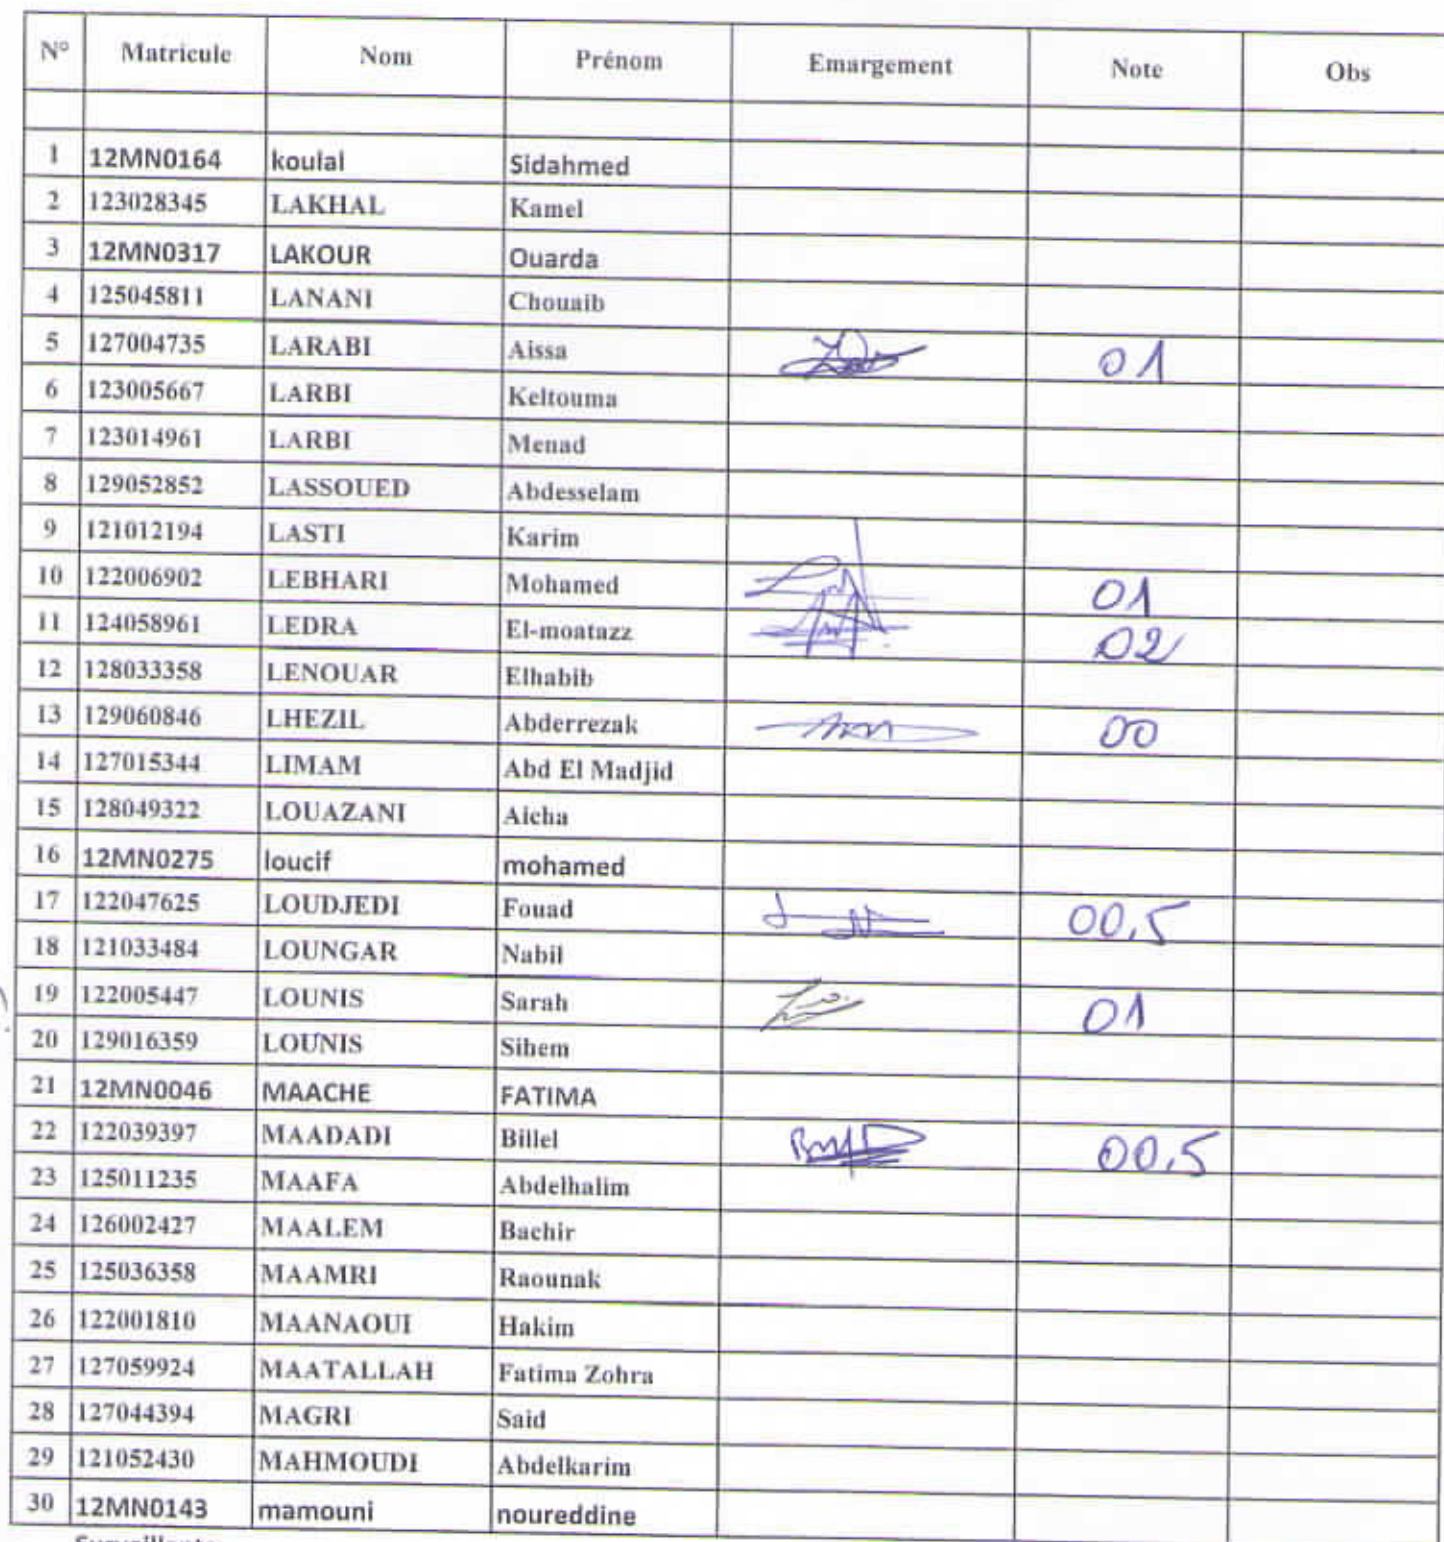 N° Matricule Nom Prénom Emargement Note Obs
1 12MN0164 koulal Sidahmed
2 123028345 LAKHAL Kamel
3 12MN0317 LAKOUR Ouarda
4 125045811 LANANI Chouaib
5 127004735 LARABI Aissa 01
6 123005667 LARBI Keltouma
7 123014961 LARBI Menad
8 129052852 LASSOUED Abdesselam
9 121012194 LASTI Karim
10 122006902 LEBHARI Mohamed 01
11 124058961 LEDRA El-moatazz 02
12 128033358 LENOUAR Elhabib
13 129060846 LHEZIL Abderrezak 00
14 127015344 LIMAM Abd El Madjid
15 128049322 LOUAZANI Aicha
16 12MN0275 loucif mohamed
17 122047625 LOUDJEDI Fouad 00,5
18 121033484 LOUNGAR Nabil
19 122005447 LOUNIS Sarah 01
20 129016359 LOUNIS Sihem
21 12MN0046 MAACHE FATIMA
22 122039397 MAADADI Billel 00,5
23 125011235 MAAFA Abdelhalim
24 126002427 MAALEM Bachir
25 125036358 MAAMRI Raounak
26 122001810 MAANAOUI Hakim
27 127059924 MAATALLAH Fatima Zohra
28 127044394 MAGRI Said
29 121052430 MAHMOUDI Abdelkarim
30 12MN0143 mamouni noureddine